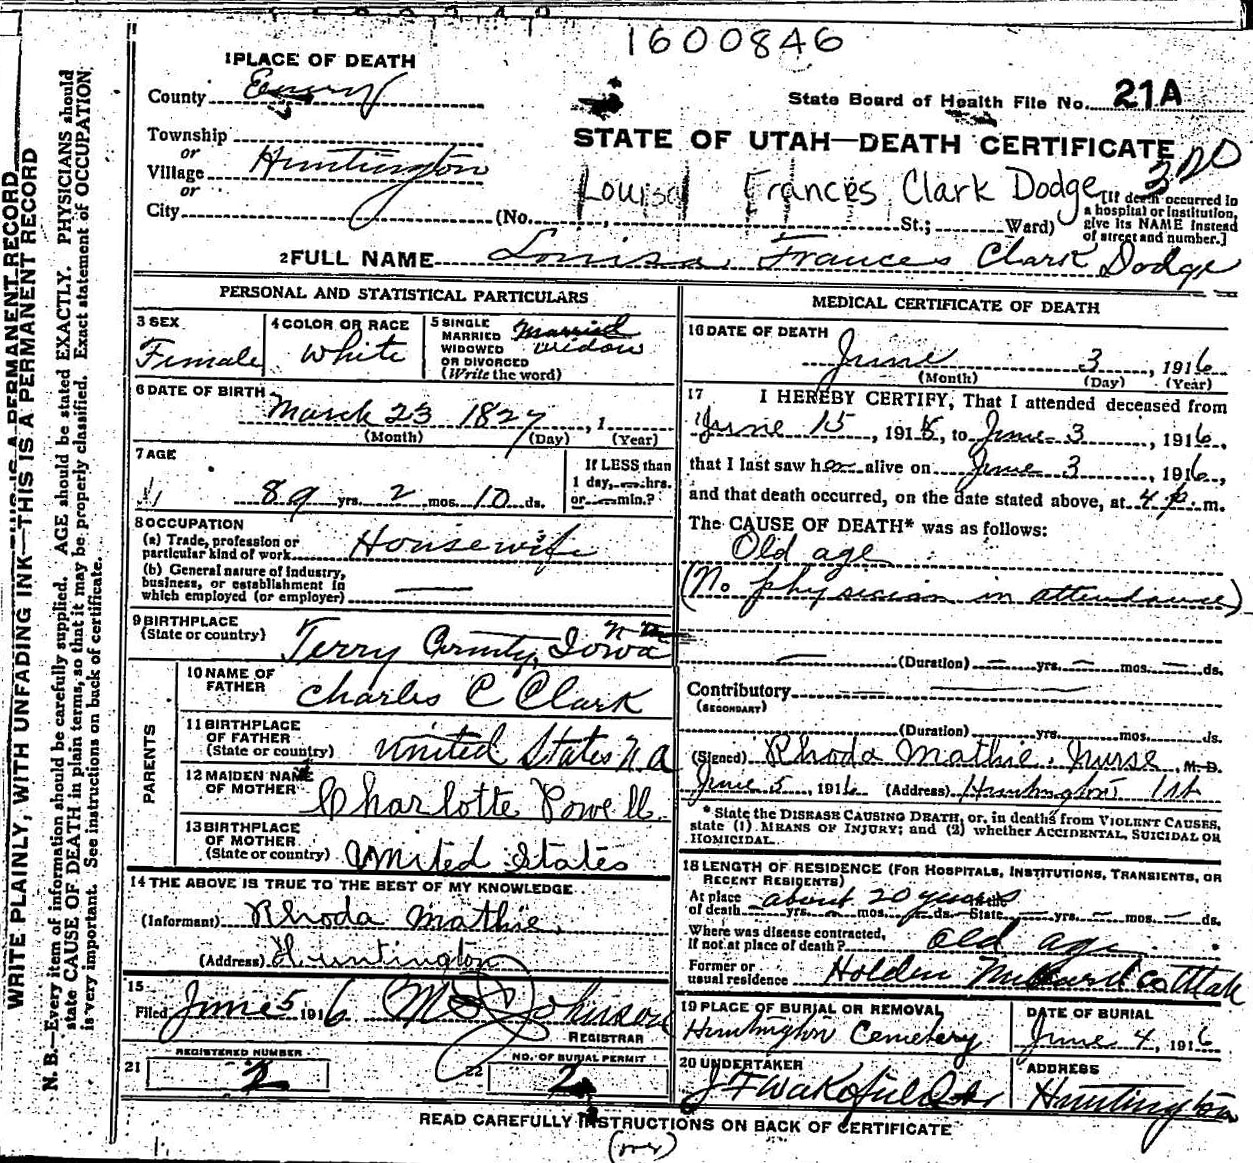 1600846
1 PLACE OF DEATH
County Emery
State Board of Health File No. 21A
Township
or
Village Huntington
or
City
STATE OF UTAH—DEATH CERTIFICATE
Louisa Frances Clark Dodge
(No. St.; Ward)
[If death occurred in
a hospital or institution,
give its NAME instead
of street and number.]
2 FULL NAME Louisa Frances Clark Dodge
PERSONAL AND STATISTICAL PARTICULARS
3 SEX
Female
4 COLOR OR RACE
White
5 SINGLE
MARRIED
WIDOWED
OR DIVORCED
(Write the word)
Married
widow
6 DATE OF BIRTH
March 23 1827, 1
(Month) (Day) (Year)
7 AGE
89 yrs. 2 mos. 10 ds.
If LESS than
1 day, — hrs.
or — min.?
8 OCCUPATION
(a) Trade, profession or
particular kind of work Housewife
(b) General nature of industry,
business, or establishment in
which employed (or employer)
9 BIRTHPLACE
(State or country)
Terry County, Iowa
PARENTS
10 NAME OF
FATHER
Charles C Clark
11 BIRTHPLACE
OF FATHER
(State or country)
United States N.A
12 MAIDEN NAME
OF MOTHER
Charlotte Powell
13 BIRTHPLACE
OF MOTHER
(State or country)
United States
14 THE ABOVE IS TRUE TO THE BEST OF MY KNOWLEDGE
(Informant) Rhoda Mathie,
(Address) Huntington
15
Filed June 5 1916 Johnson
REGISTRAR
21 REGISTERED NUMBER
2
22 NO. OF BURIAL PERMIT
2
MEDICAL CERTIFICATE OF DEATH
16 DATE OF DEATH
June 3, 1916
(Month) (Day) (Year)
17 I HEREBY CERTIFY, That I attended deceased from
June 15, 1915, to June 3, 1916,
that I last saw her alive on June 3, 1916,
and that death occurred, on the date stated above, at 4 p. m.
The CAUSE OF DEATH* was as follows:
Old age
(No physician in attendance)
(Duration) yrs. mos. ds.
Contributory
(SECONDARY)
(Duration) yrs. mos. ds.
(Signed) Rhoda Mathie, Nurse M. D.
June 5, 1916 (Address) Huntington Ut
* State the DISEASE CAUSING DEATH, or, in deaths from VIOLENT CAUSES,
state (1) MEANS OF INJURY; and (2) whether ACCIDENTAL, SUICIDAL OR
HOMICIDAL.
18 LENGTH OF RESIDENCE (FOR HOSPITALS, INSTITUTIONS, TRANSIENTS, OR
RECENT RESIDENTS)
At place
of death about 20 years yrs. mos. ds. State yrs. mos. ds.
Where was disease contracted,
if not at place of death? Old age
Former or
usual residence Holden Millard Co Utah
19 PLACE OF BURIAL OR REMOVAL
Huntington Cemetery
DATE OF BURIAL
June 4, 1916
20 UNDERTAKER
J F Wakefield
ADDRESS
Huntington
READ CAREFULLY INSTRUCTIONS ON BACK OF CERTIFICATE
(over)
WRITE PLAINLY, WITH UNFADING INK—THIS IS A PERMANENT RECORD
N. B.—Every item of information should be carefully supplied. AGE should be stated EXACTLY. PHYSICIANS should
state CAUSE OF DEATH in plain terms, so that it may be properly classified. Exact statement of OCCUPATION
is very important. See instructions on back of certificate.